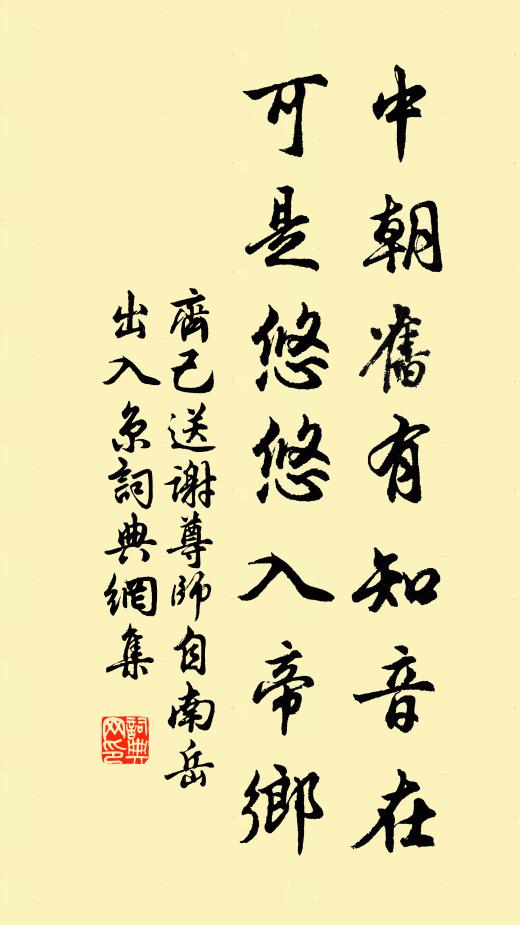 中朝舊有知音在
可是悠悠入帝鄉
齊己送謝尊師自南岳
出入京詞典網集
詞典
网印